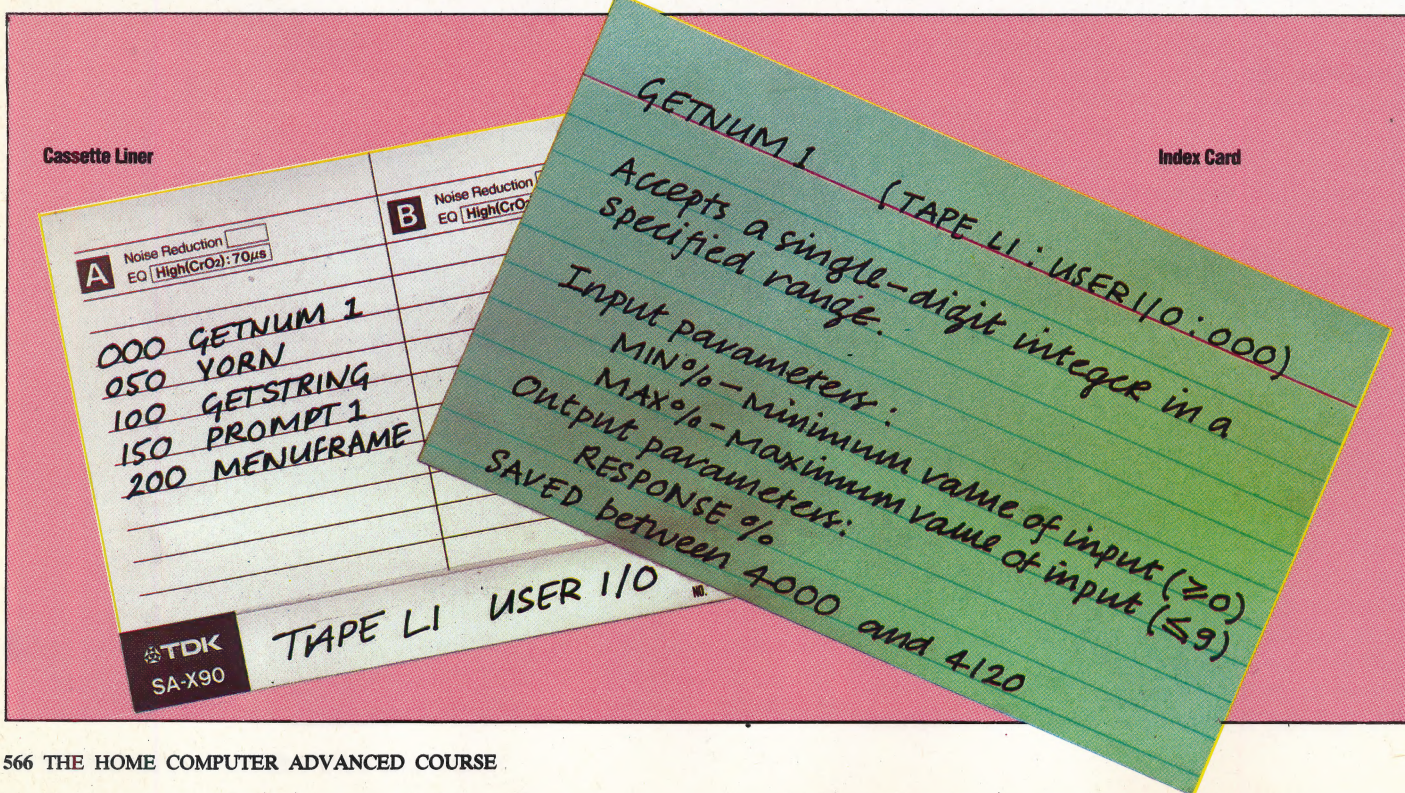 Cassette Liner
A Noise Reduction
EQ High(CrO2): 70µs
B Noise Reduction
EQ High(CrO
000 GETNUM 1
050 YORN
100 GETSTRING
150 PROMPT 1
200 MENUFRAME
TDK
SA-X90
TAPE L1 USER I/O
NO.
Index Card
GETNUM 1 (TAPE L1: USER I/O: 000)
Accepts a single-digit integer in a
specified range.
Input parameters:
MIN% - minimum value of input (≥0)
MAX% - maximum value of input (≤9)
Output parameters:
RESPONSE %
SAVED between 4000 and 4120
566 THE HOME COMPUTER ADVANCED COURSE